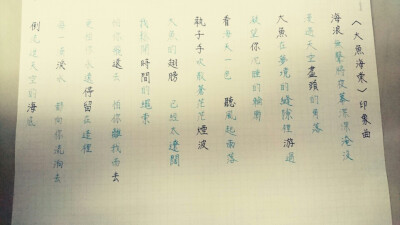 〈大魚海棠〉印象曲
海浪無聲將夜幕深深淹沒
漫過天空盡頭的角落
大魚在夢境的縫隙裡游過
凝望你沉睡的輪廓
看海天一色 聽風起雨落
執子手吹散蒼茫茫煙波
大魚的翅膀 已經太遼闊
我鬆開時間的繩索
怕你飛遠去 怕你離我而去
更怕你永遠停留在這裡
每一滴淚水 都向你流淌去
倒流進天空的海底